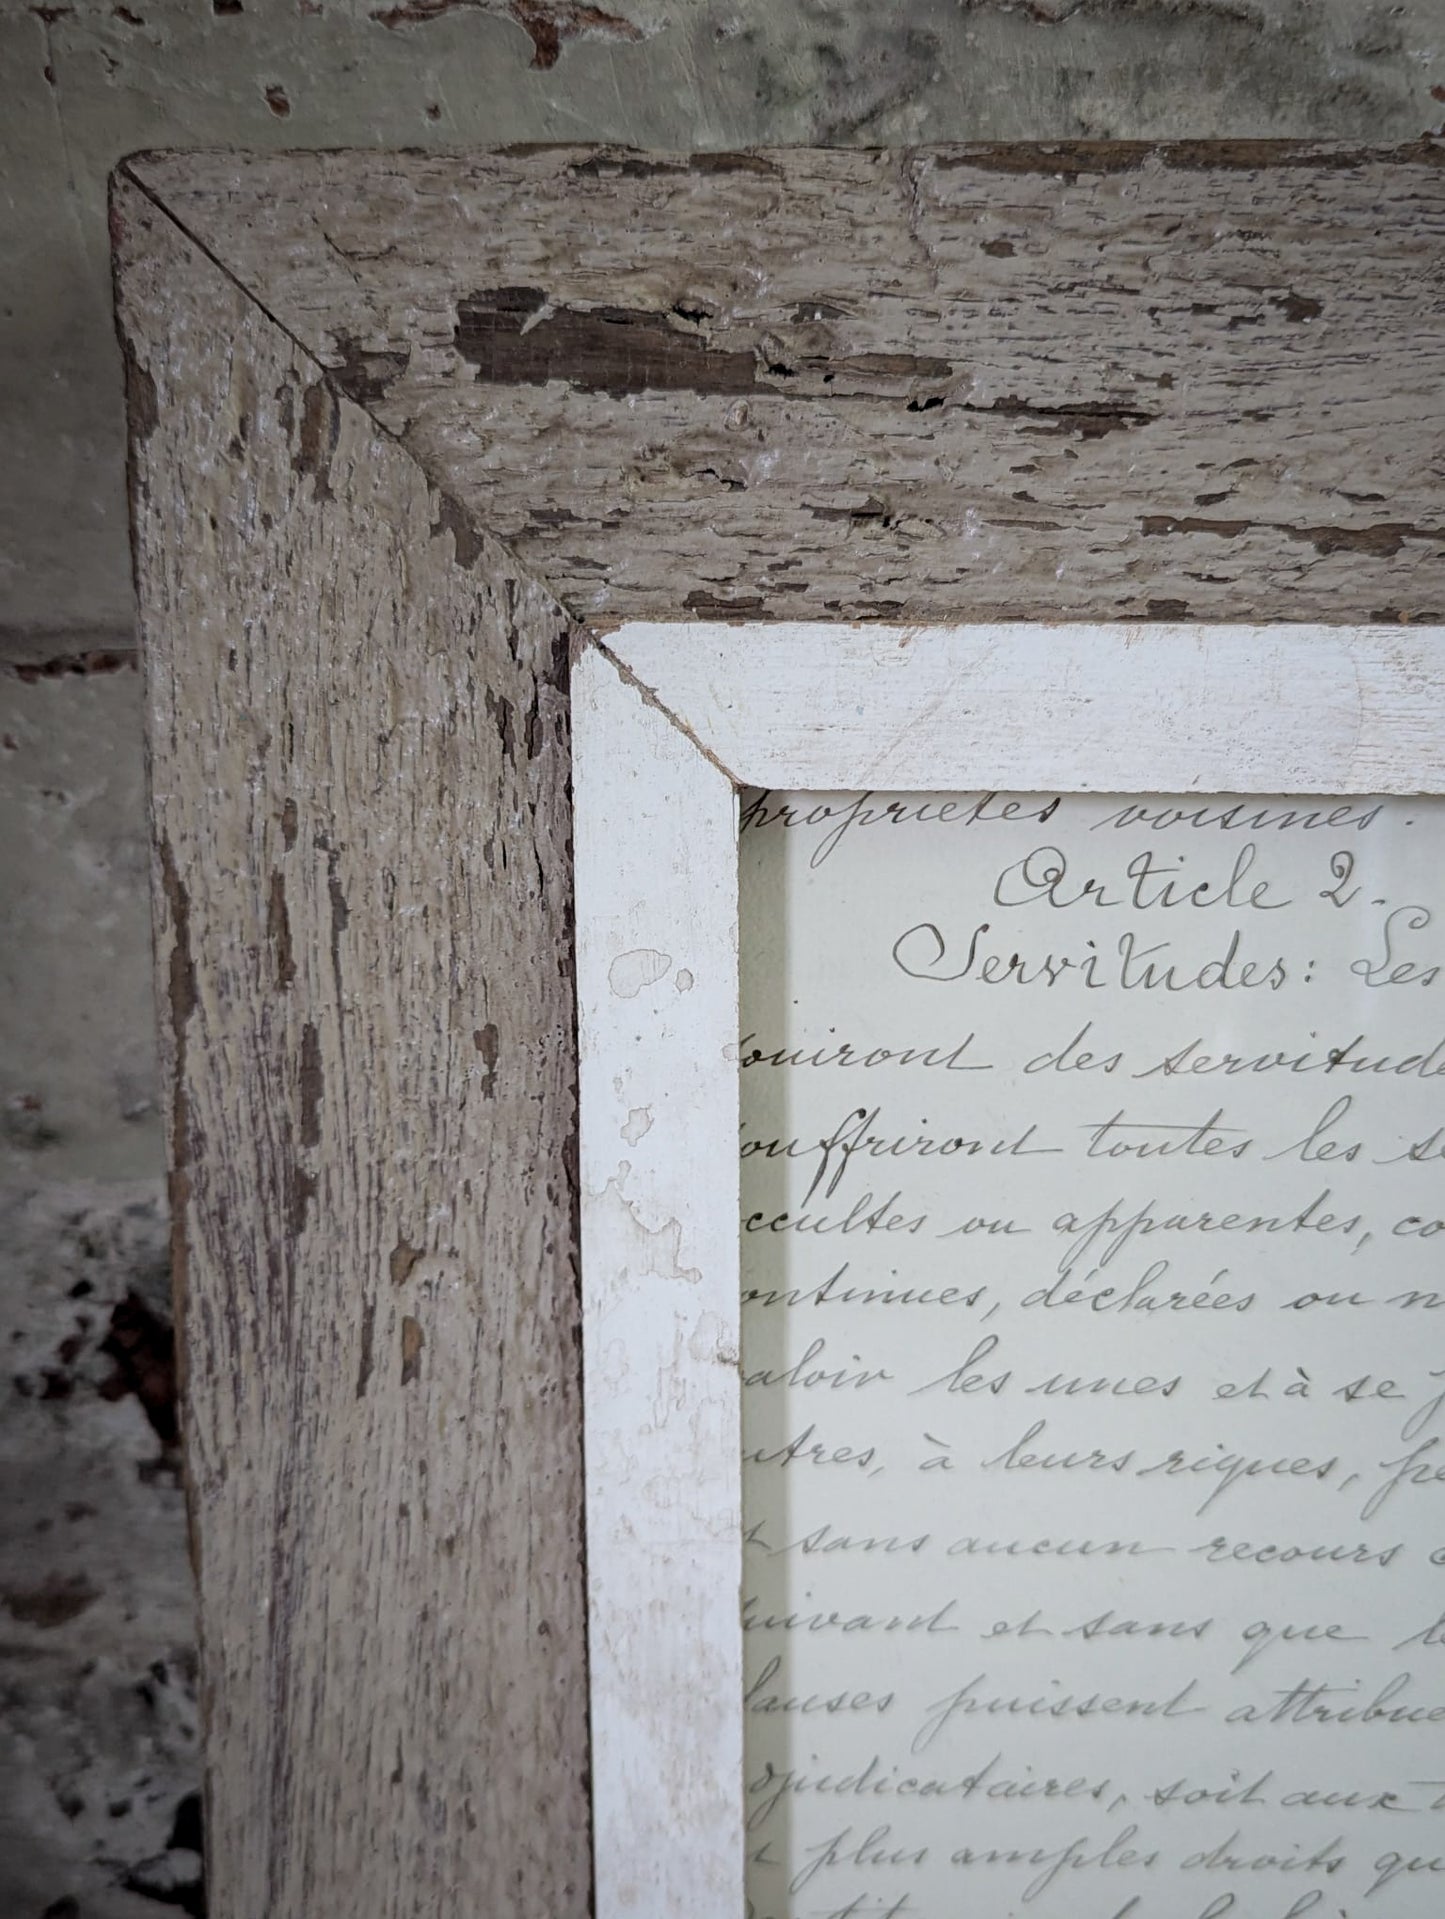 propriétés voisines.
Article 2.
Servitudes: Les
ouiront des servitude
ouffriront toutes les se
ccultes ou apparentes, co
ontinues, déclarées ou n
aloir les unes et à se p
utres, à leurs riques, pé
t sans aucun recours c
uivant et sans que le
lauses puissent attribue
djudicataires, soit aux t
t plus amples droits qu